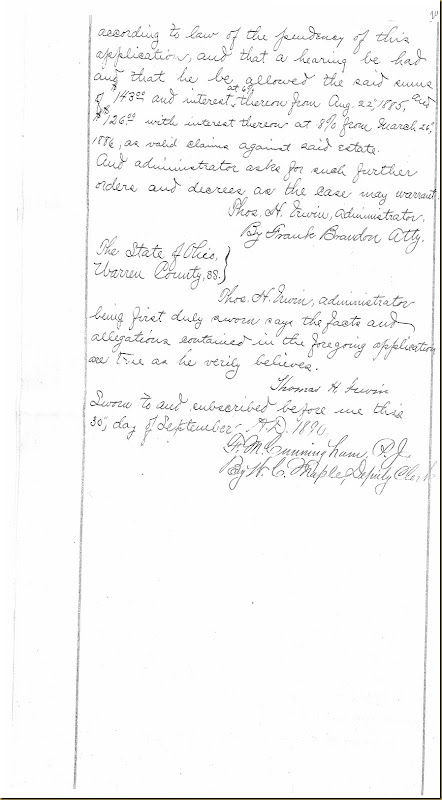 according to law of the pendency of this
application, and that a hearing be had
and that he be allowed the said sums
of $143.00 and interest at 6% thereon from Aug. 22", 1885, and
$126.00 with interest thereon at 8% from March 26",
1886, as valid claims against said estate.
And administrator asks for such further
orders and decrees as the case may warrant.
Thos. H. Irwin, Administrator.
By Frank Brandon Atty.
The State of Ohio, }
Warren County, ss. }
Thos. H. Irwin, administrator
being first duly sworn says the facts and
allegations contained in the foregoing application
are true as he verily believes.
Thomas H. Irwin
Sworn to and subscribed before me this
30", day of September A.D. 1890.
F. M. Cunningham, P.J.
By W. C. Maple, Deputy Clerk